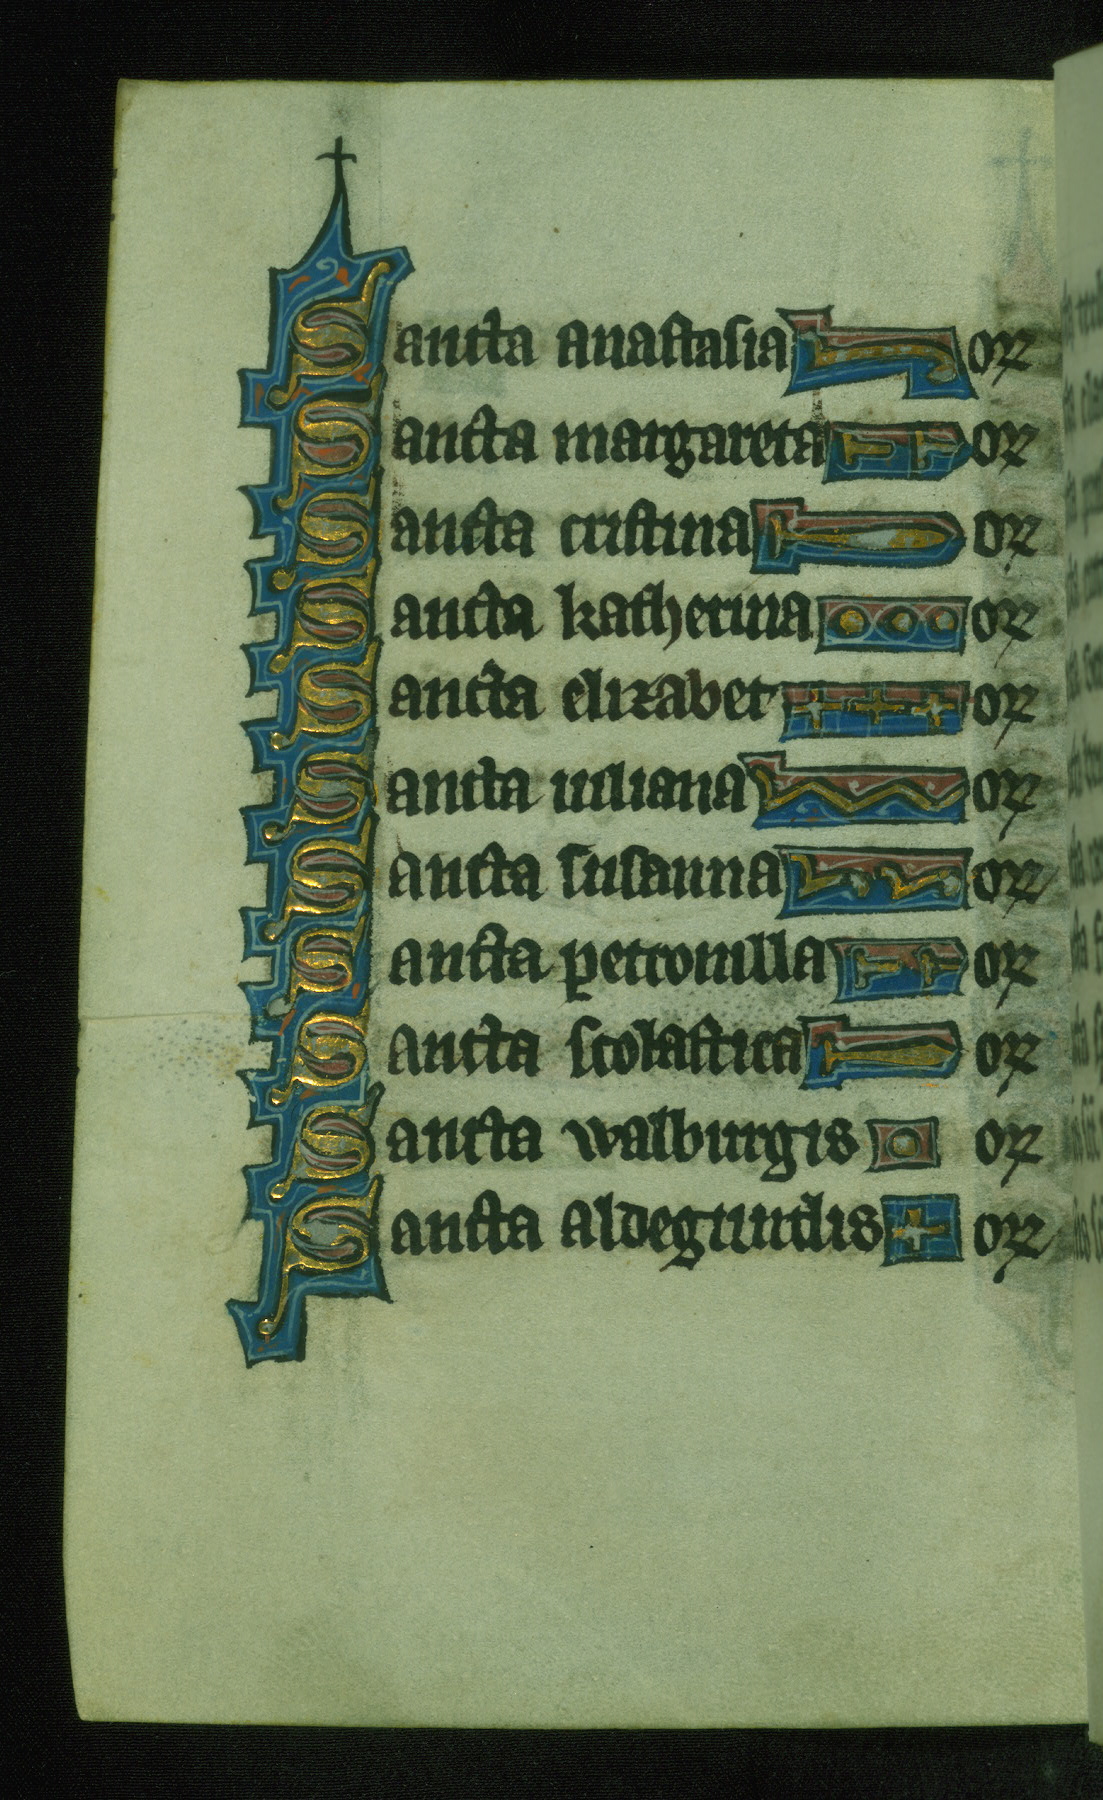 Sancta anastasia or
Sancta margareta or
Sancta cristina or
Sancta katherina or
Sancta elizabet or
Sancta iuliana or
Sancta susanna or
Sancta petronilla or
Sancta scolastica or
Sancta walburgis or
Sancta aldegundis or